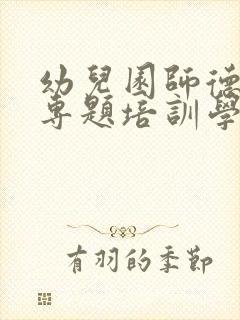 幼兒園師德
專題培訓學
有羽的季節